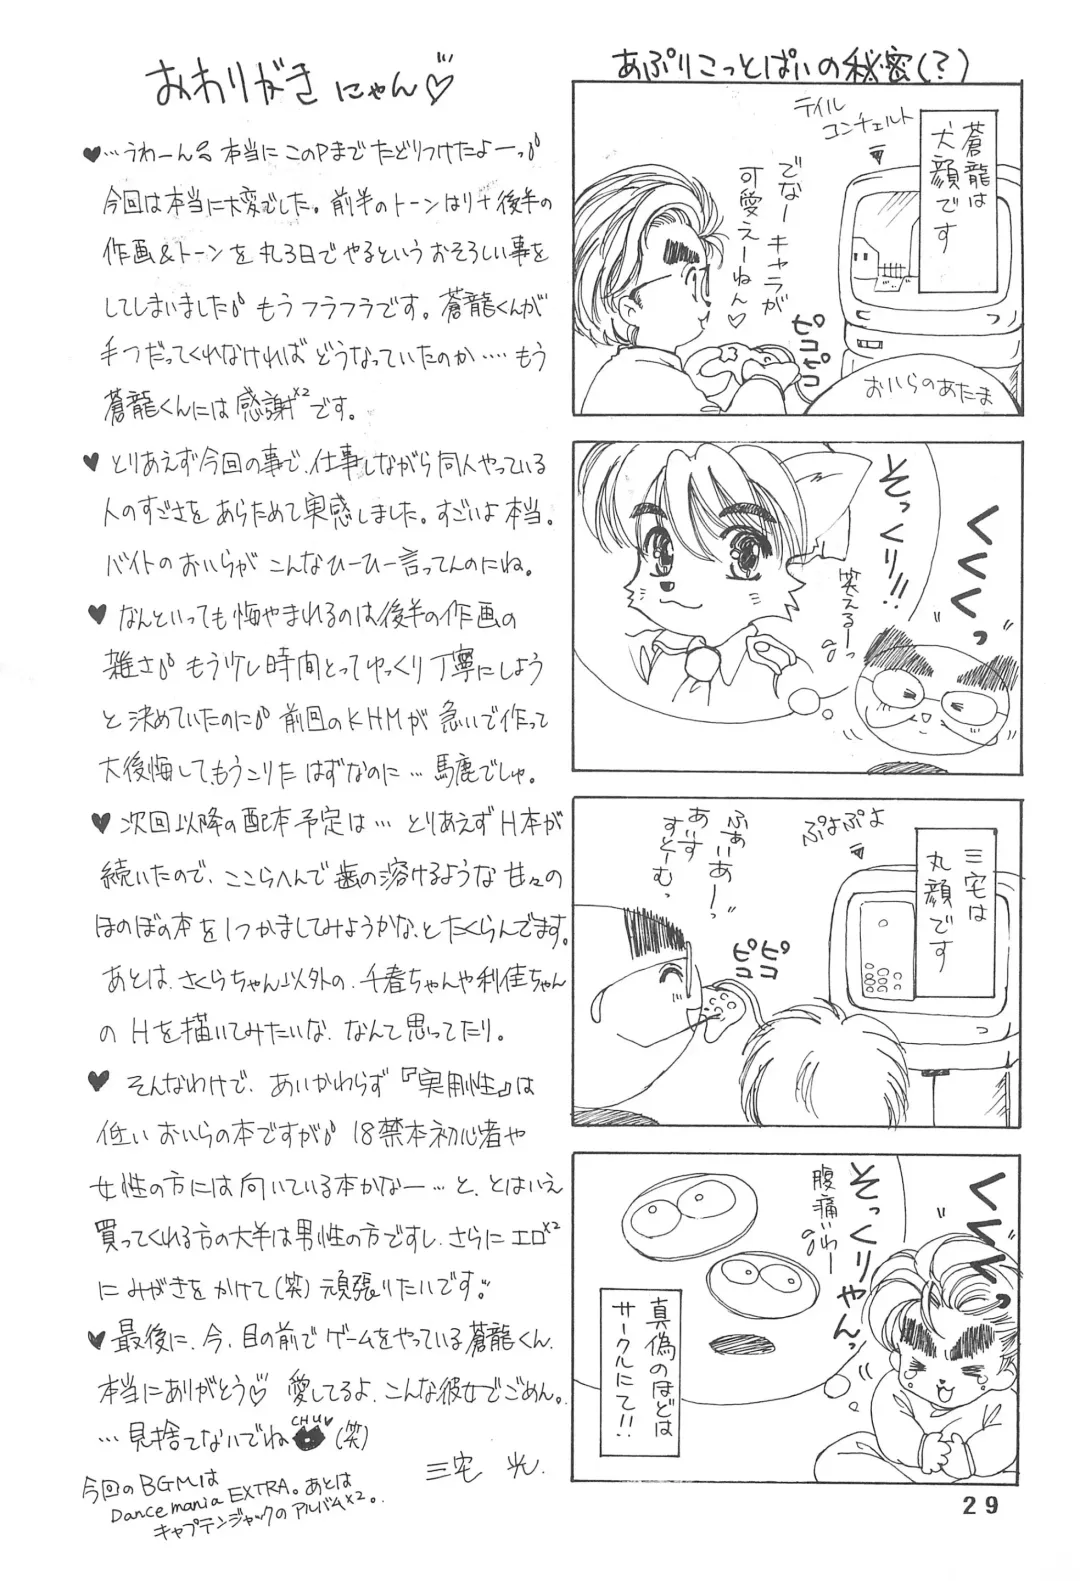 おわりがき にゃん♡
♥…うわーん 本当に このPまで たどりつけたよーっ
今回は本当に大変でした。前半のトーンはり+後半の
作画&トーンを 丸3日でやるという おそろしい事を
してしまいました もう フラフラです。蒼龍くんが
手つだってくれなければ どうなっていたのか‥‥もう
蒼龍くんには 感謝×2です。
♥ とりあえず今回の事で、仕事しながら同人やっている
人のすごさを あらためて実感しました。すごいよ本当。
バイトのおいらが こんなひーひー言ってんのにね。
♥ なんといっても悔やまれるのは後半の作画の
雑さ もう少し時間とってゆっくり丁寧にしよう
と決めていたのに 前回のKHMが 急いで作って
大後悔して、もうこりた はずなのに…馬鹿でしゅ。
♥ 次回以降の配本予定は… とりあえず H本が
続いたので、ここらへんで 歯の溶けるような 甘々の
ほのぼの本 を1つかましてみようかな、と たくらんでます。
あとは、さくらちゃん以外の、千春ちゃんや利佳ちゃん
の Hを描いてみたいな、なんて思ってたり。
♥ そんなわけで、あいかわらず『実用性』は
低い おいらの本ですが 18禁本初心者や
女性の方には 向いている本かなー…と、とはいえ
買ってくれる方の大半は男性の方ですし、さらに エロ×2
に みがきを かけて(笑)頑張りたいです。
♥ 最後に、今、目の前で ゲームをやっている蒼龍くん、
本当にありがとう♡ 愛してるよ、こんな彼女でごめん。
…見捨てないでね CHU♥ (笑)
三宅 光.
今回のBGMは
Dancemania EXTRA。あとは
キャプテンジャックの アルバム×2。
あぷりこっとぱいの秘密(?)
蒼龍は
犬顔です
テイル
コンチェルト
でなーキャラが
可愛えーねん♡
ピコピコ
おいらのあたま
そっくり!!
笑えるーっ
くくくっ
三宅は
丸顔です
ぷよぷよ
ふぁいあーっ
あいす
すとーむっ
ピコ
ピコ
くくくっ
そっくりやんっ
腹痛いわー
真偽のほどは
サークルにて!!
29